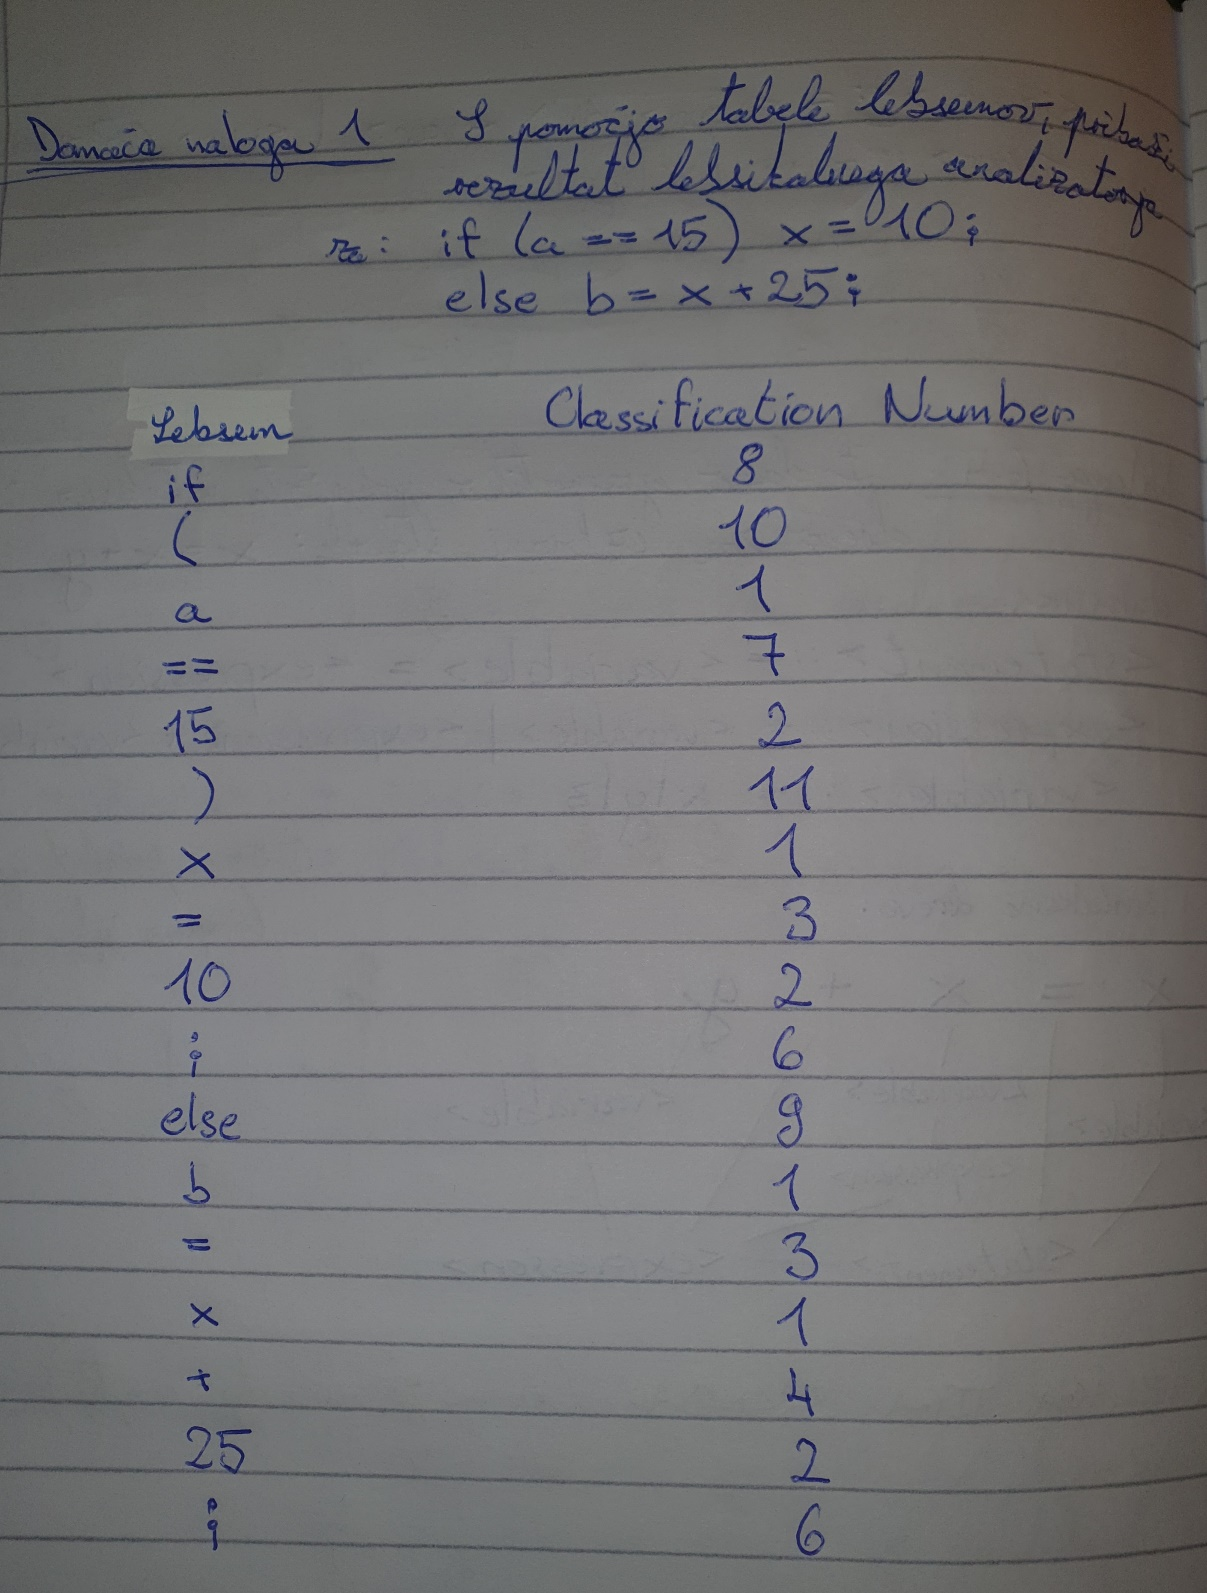 Domača naloga 1 S pomočjo tabele leksemov, prikaži
rezultat leksikalnega analizatorja
za: if (a == 15) x = 10;
else b = x + 25;
Leksem Classification Number
if 8
( 10
a 1
== 7
15 2
) 11
x 1
= 3
10 2
; 6
else 9
b 1
= 3
x 1
+ 4
25 2
; 6